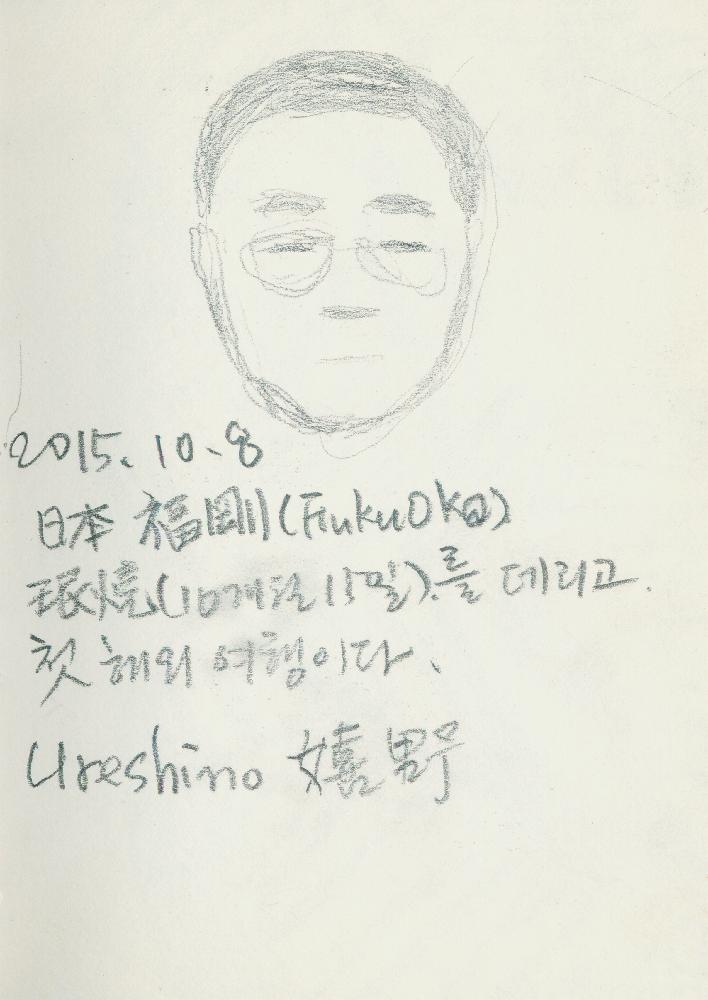 2015. 10. 8
日本 福剛(Fukuoka)
珉燒(10개월 15일)를 데리고.
첫 해외 여행이다.
Ureshino 嬉野